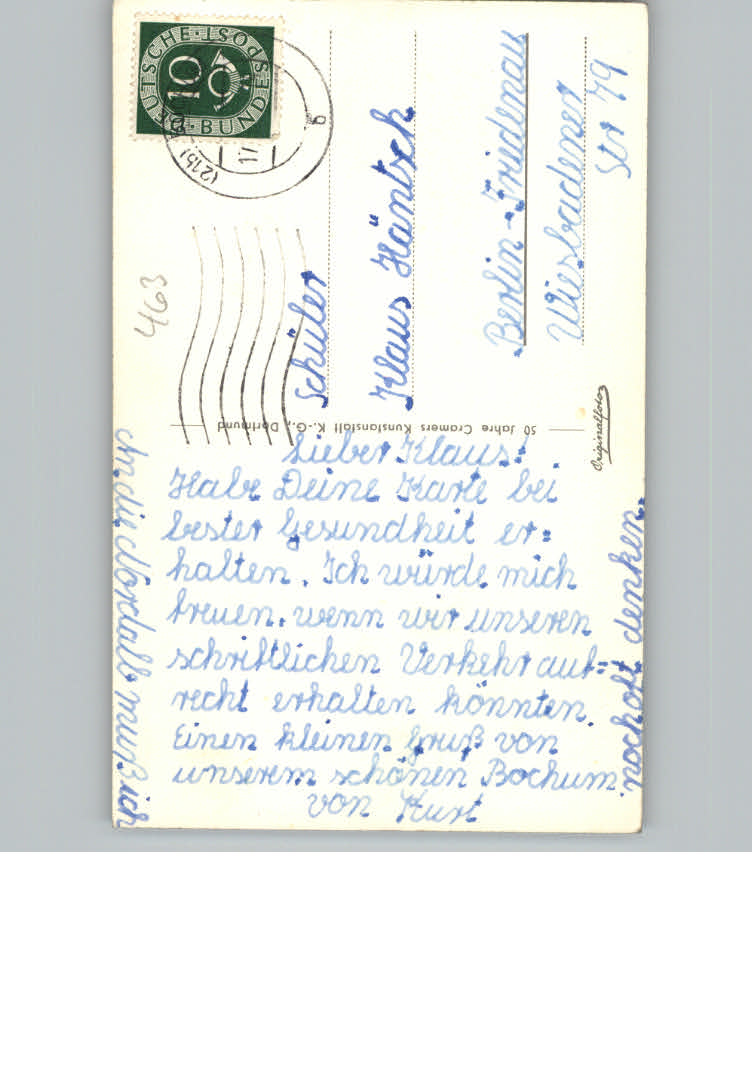 DEUTSCHE·BUNDESPOST
10
(21b)
17
b
463
Schüler
Klaus Häntsch
Berlin-Friedenau
Wiesbadener
Str 79
50 Jahre Cramers Kunstanstalt K.-G., Dortmund
Originalfoto
Lieber Klaus!
Habe Deine Karte bei
bester Gesundheit er=
halten. Ich würde mich
freuen, wenn wir unseren
schriftlichen Verkehr auf=
recht erhalten könnten.
Einen kleinen Gruß von
unserem schönen Bochum.
von Kurt
An die muß ich
noch oft denken.